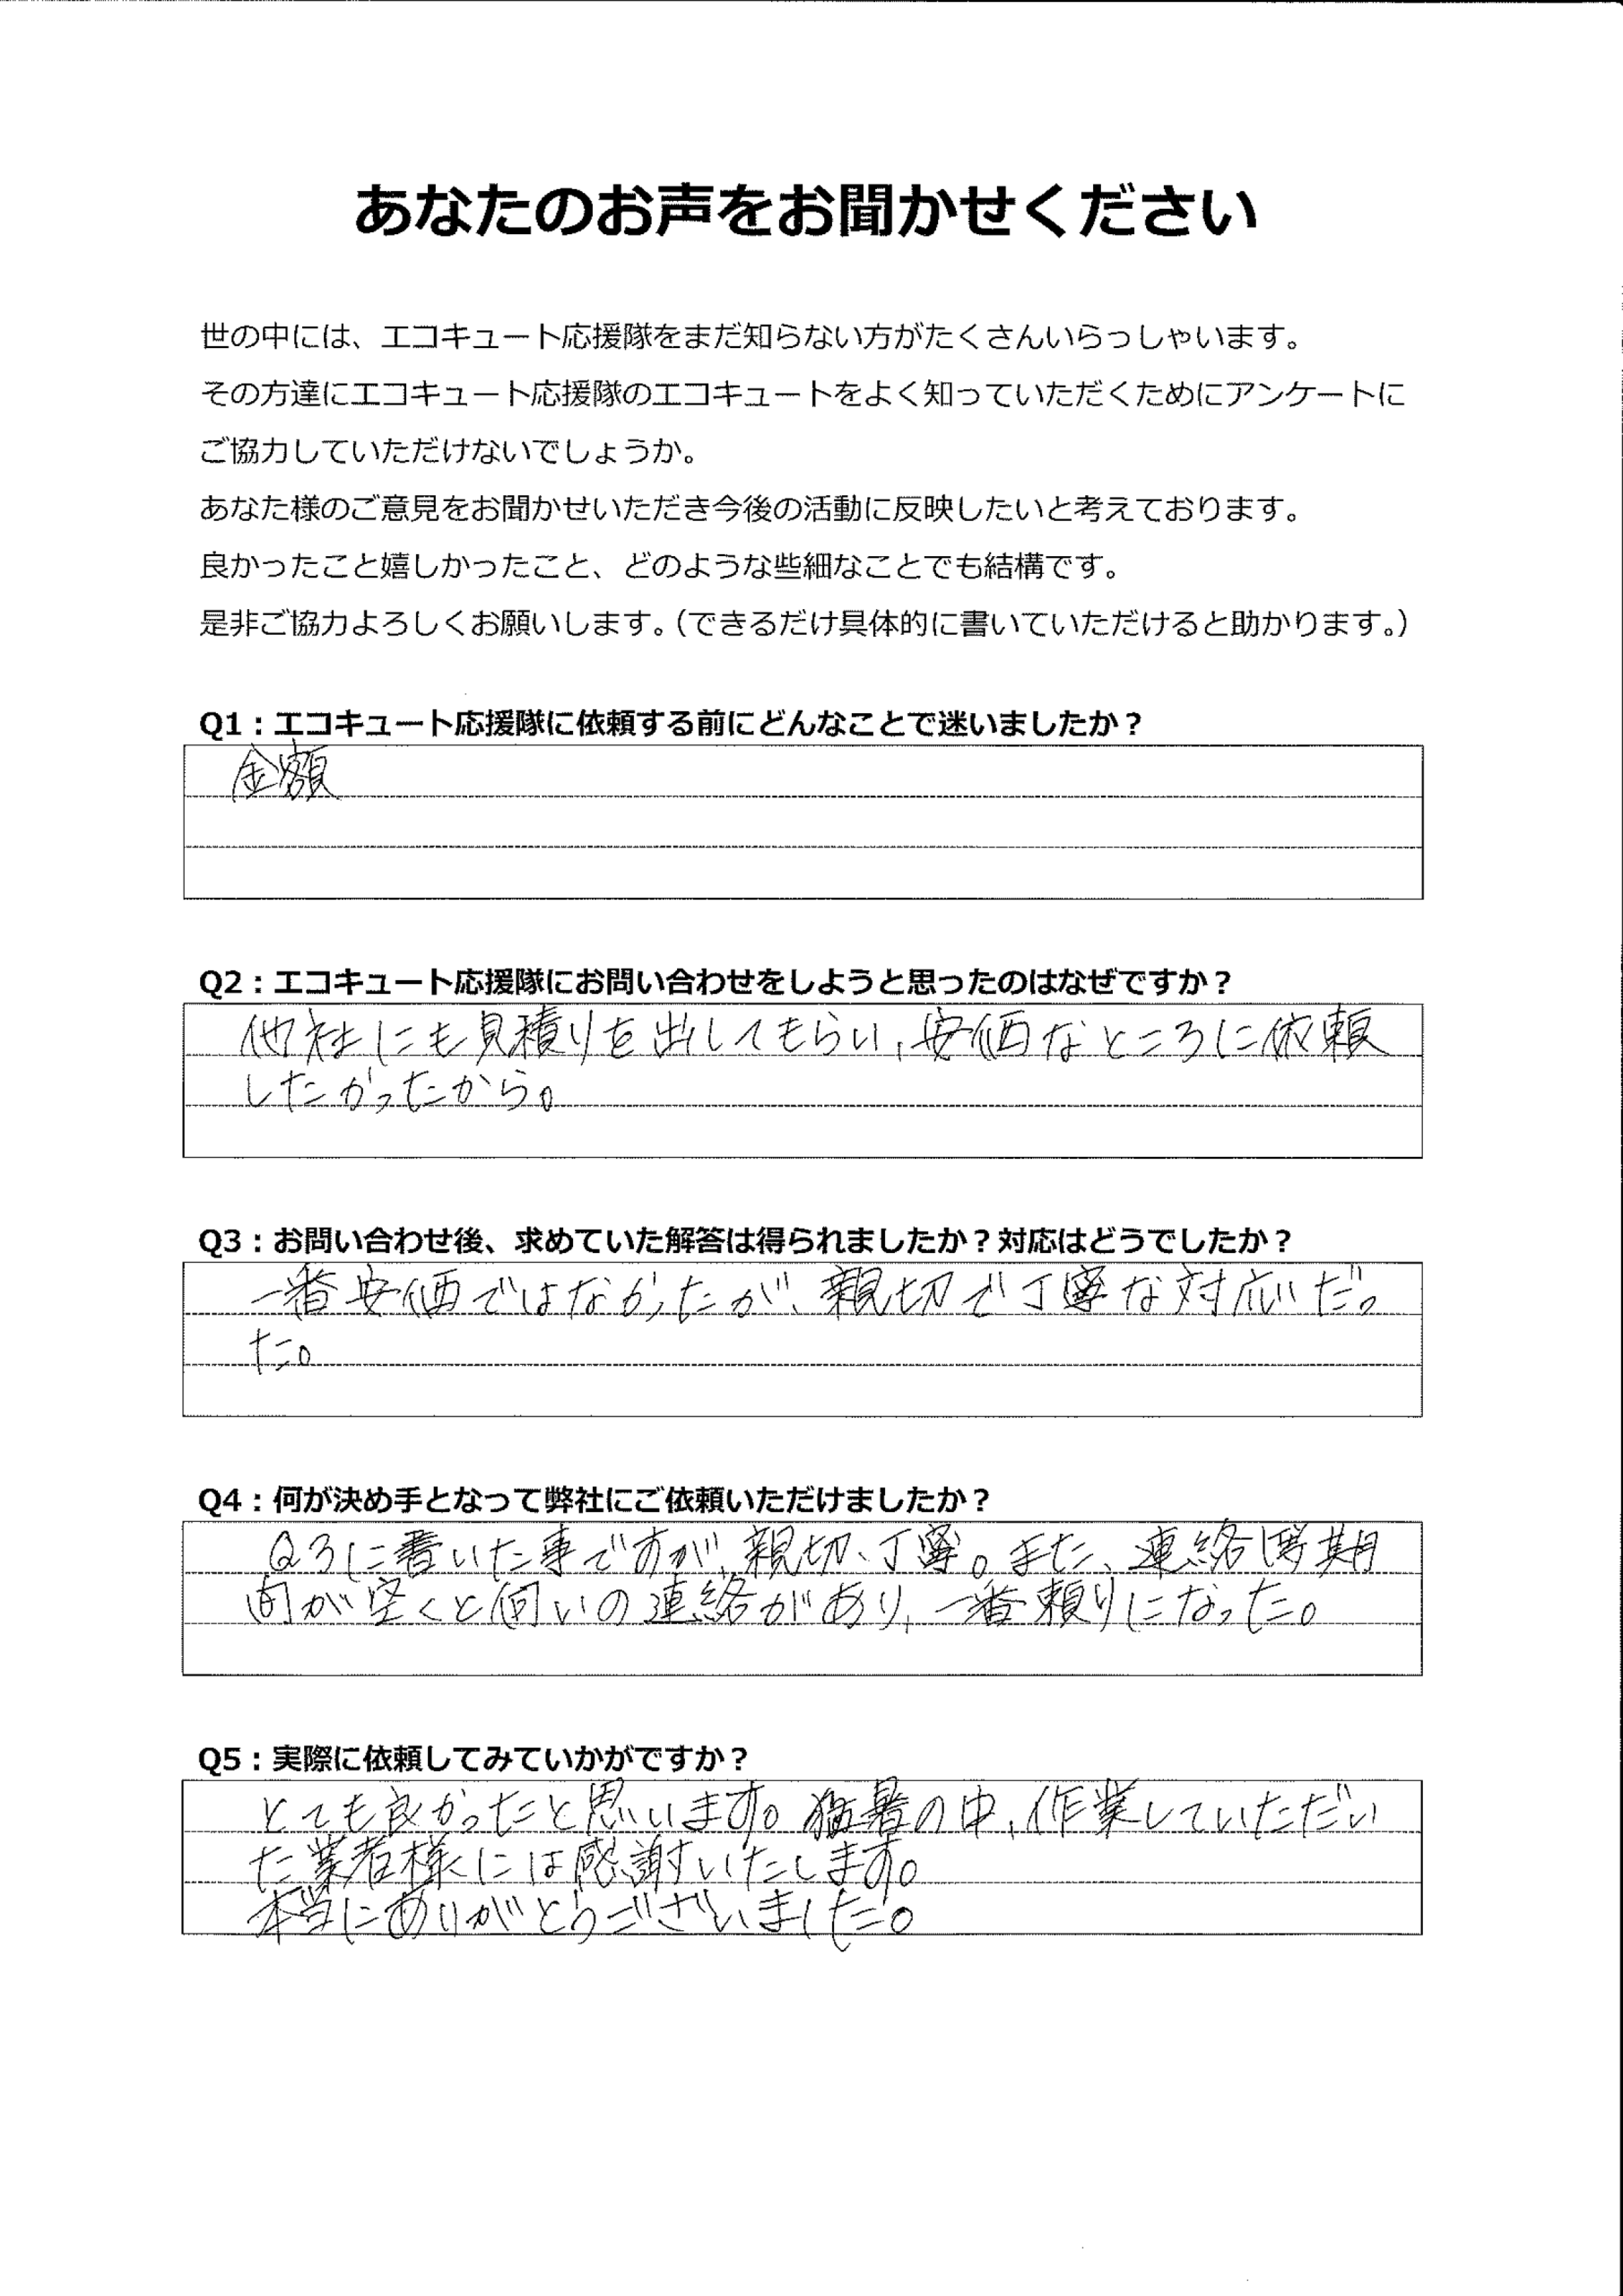 あなたのお声をお聞かせください
世の中には、エコキュート応援隊をまだ知らない方がたくさんいらっしゃいます。
その方達にエコキュート応援隊のエコキュートをよく知っていただくためにアンケートに
ご協力していただけないでしょうか。
あなた様のご意見をお聞かせいただき今後の活動に反映したいと考えております。
良かったこと嬉しかったこと、どのような些細なことでも結構です。
是非ご協力よろしくお願いします。（できるだけ具体的に書いていただけると助かります。）
Q1：エコキュート応援隊に依頼する前にどんなことで迷いましたか？
金額
Q2：エコキュート応援隊にお問い合わせをしようと思ったのはなぜですか？
他社にも見積りを出してもらい、安価なところに依頼
したかったから。
Q3：お問い合わせ後、求めていた解答は得られましたか？対応はどうでしたか？
一番安価ではなかったが、親切で丁寧な対応だっ
た。
Q4：何が決め手となって弊社にご依頼いただけましたか？
Q3に書いた事ですが、親切、丁寧。また、連絡 期
間が空くと伺いの連絡があり、一番頼りになった。
Q5：実際に依頼してみていかがですか？
とても良かったと思います。猛暑の中、作業していただい
た業者様には感謝いたします。
本当にありがとうございました。